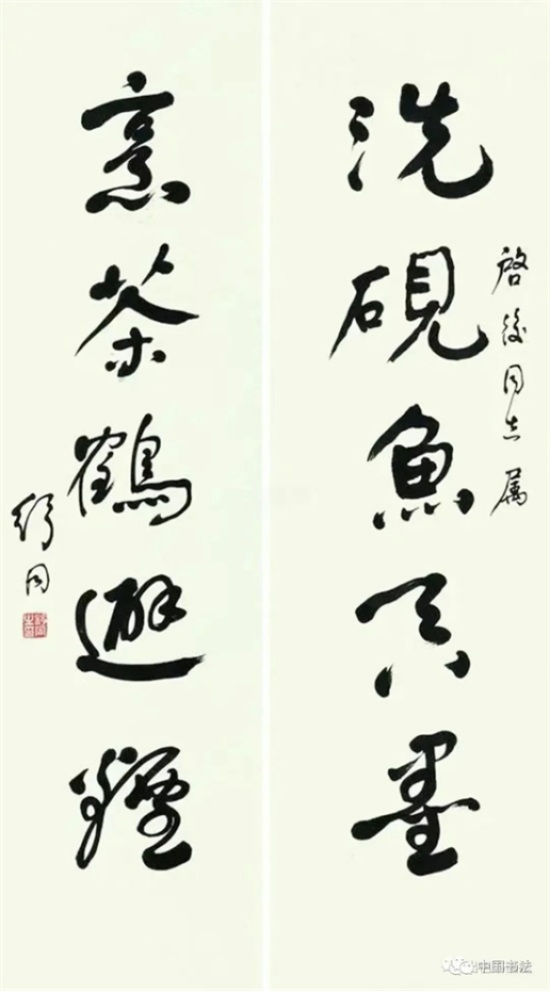 啓後同志属
洗硯魚吞墨
烹茶鶴避煙
舒同
中国书法